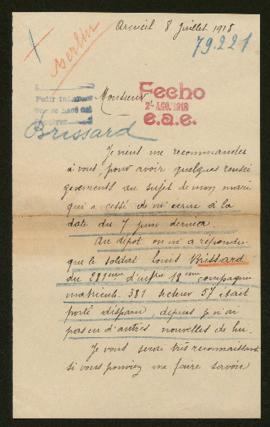 Arcueil 8 Juillet 1918
79.221
Berlin
Monsieur
Fecho
2- AGO. 1918
e.a.e.
Brissard
Je viens me recommander
à vous, pour avoir quelques rensei
gnements au sujet de mon mari
qui a cessé de m'écrire à la
date du 7 juin dernier.
Au dépôt on m'a répondu
que le soldat Louis Brissard
du 289ème d'infrie 19ème compagnie
matricule 381 secteur 57 était
porté disparu, depuis je n'ai
pas eu d'autres nouvelles de lui.
Je vous serai très reconnaissante
si vous pouviez me faire savoir